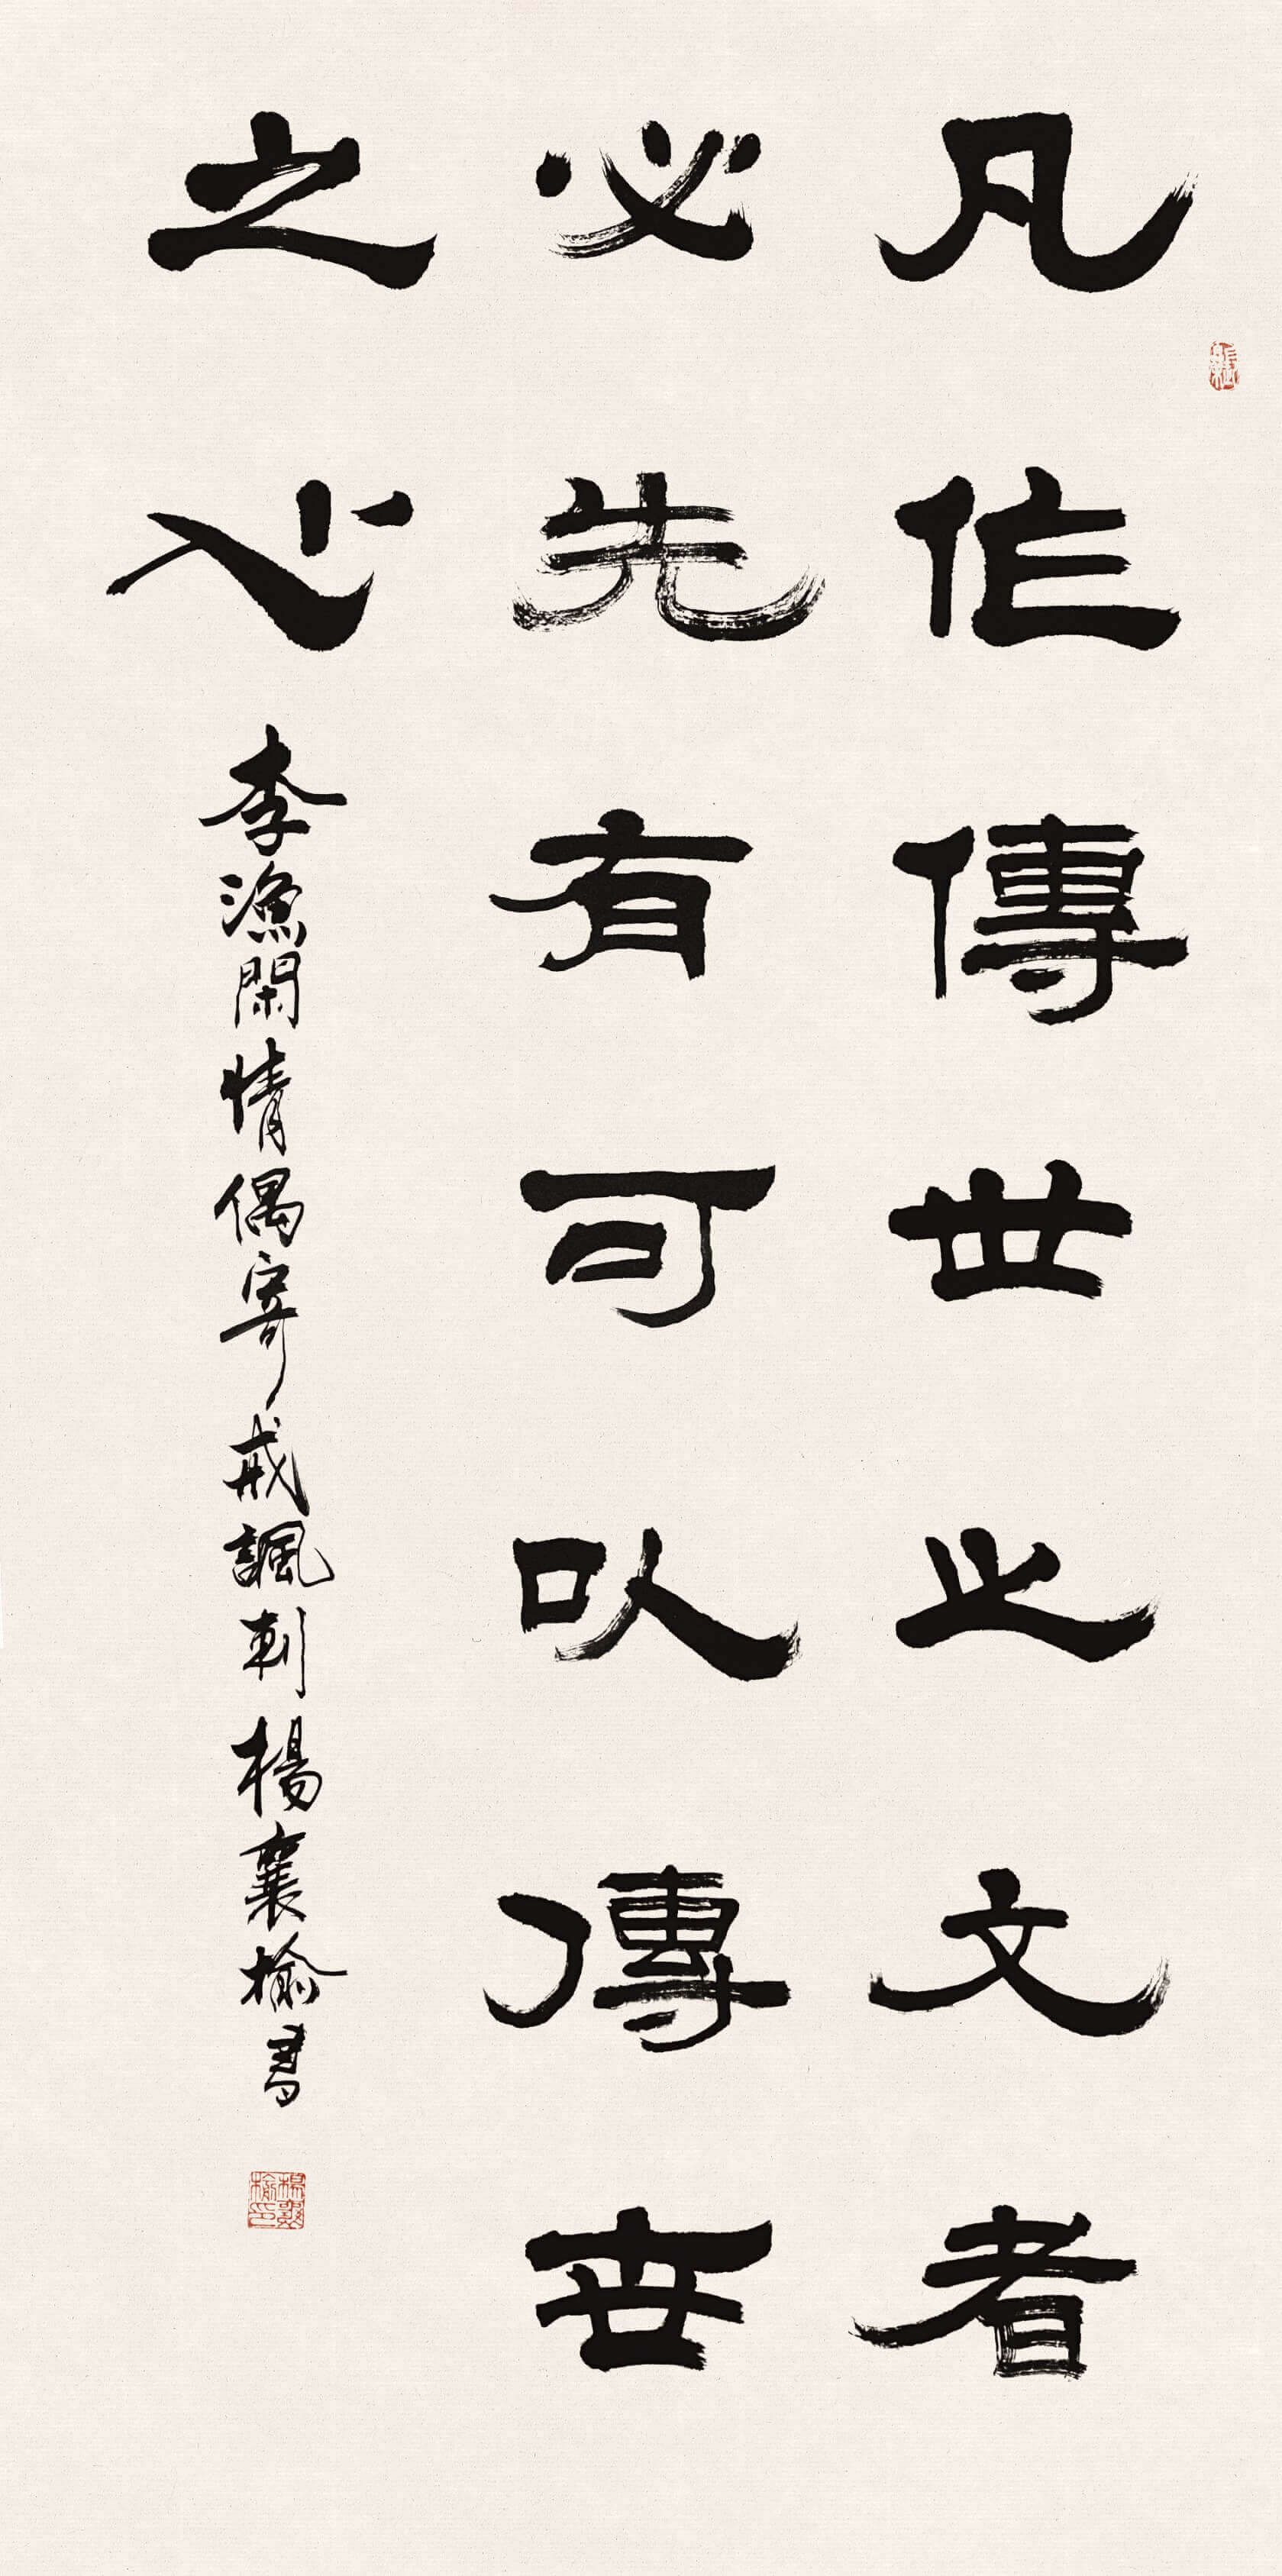 凡作傳世之文者
必先有可以傳世
之心
李漁閑情偶寄戒諷刺楊襄榆書